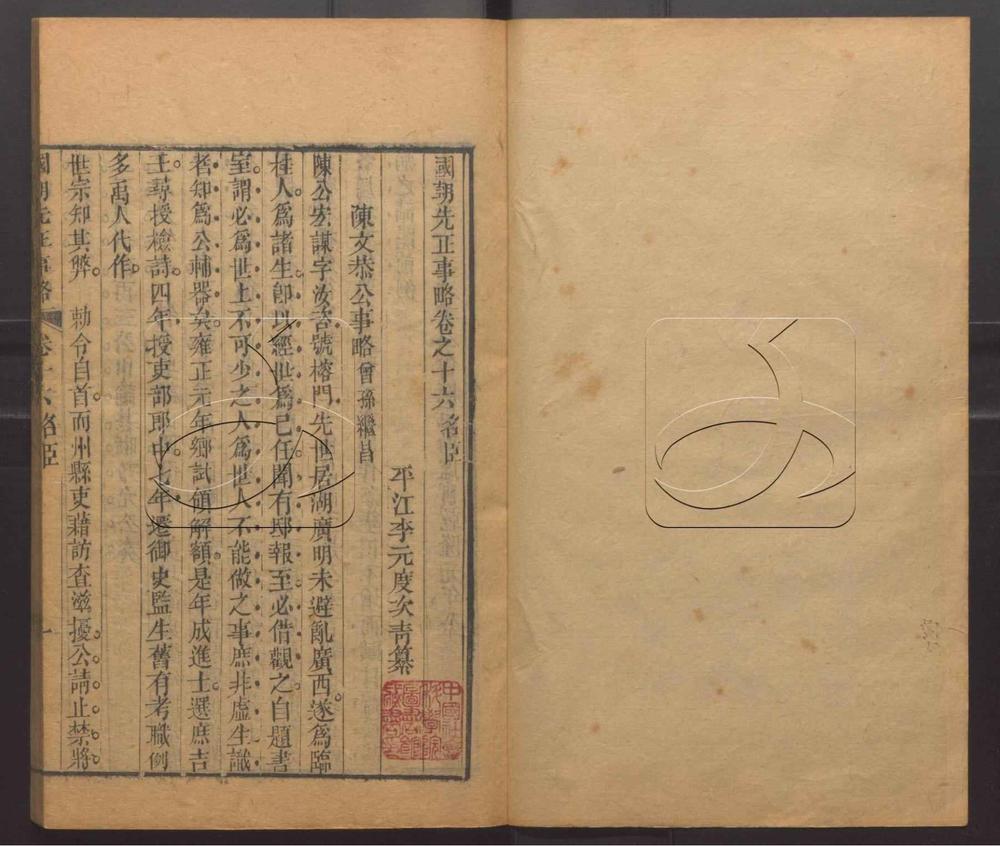 國朝先正事略卷之十六 名臣
平江李元度次青纂
陳文恭公事略 曾孫繼昌
陳公宏謀字汝咨號榕門先世居湖廣明末避亂廣西遂爲臨
桂人爲諸生卽以經世爲己任聞有邸報至必借觀之自題書
室謂必爲世上不可少之人爲世人不能做之事庶非虛生識
者知爲公輔器矣雍正元年鄉試領解額是年成進士選庶吉
士尋授檢討四年授吏部郎中七年遷御史監生舊有考職例
多冩人代作
世宗知其弊 勅令自首而州縣吏藉訪查滋擾公請止禁將
國朝先正事略 卷十六 名臣 一